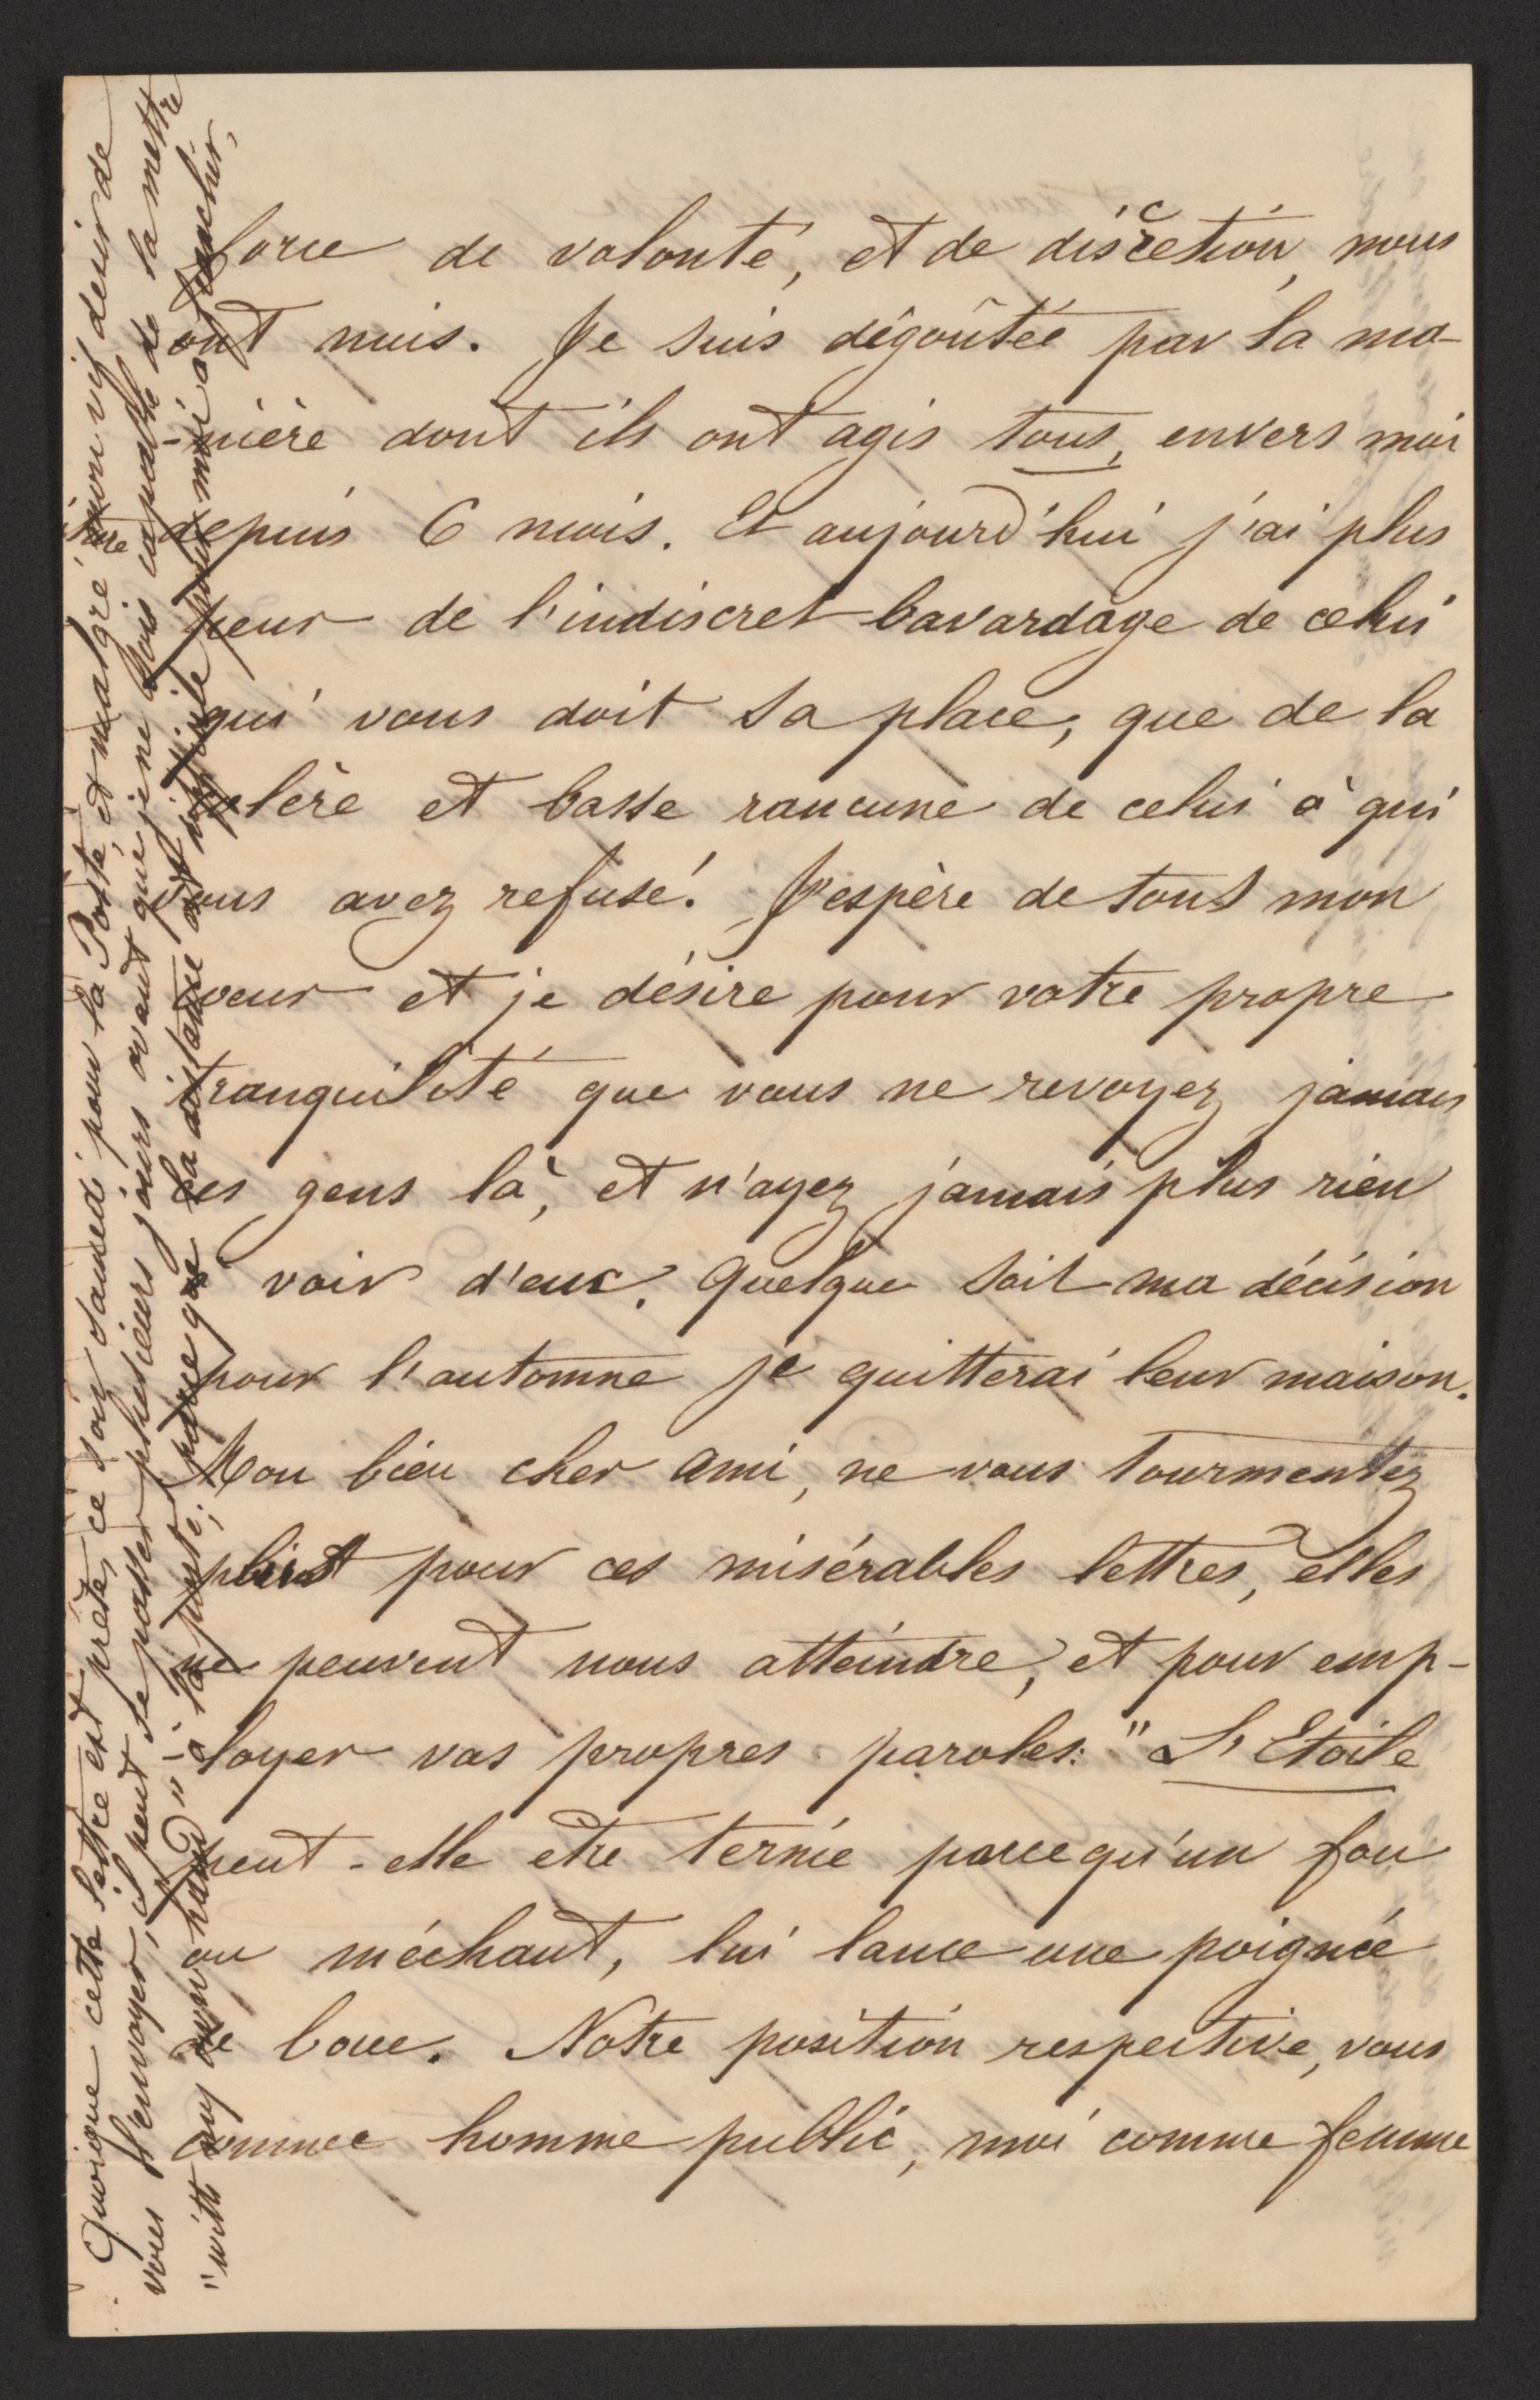 force de volonté, et de discrétion, nous
ont nuis. Je suis dégoûtée par la ma-
-nière dont ils ont agis tous, envers moi
depuis 6 mois. Et aujourd'hui j'ai plus
peur de l'indiscret bavardage de celui
qui vous doit sa place, que de la
colère et basse rancune de celui à qui
vous avez refusé! J'espère de tout mon
coeur et je désire pour votre propre
tranquilité que vous ne revoyez jamais
ces gens là, et n'ayez jamais plus rien
à voir d'eux. Quelque soit ma décision
pour l'automne je quitterai leur maison.
Mon bien cher ami, ne vous tourmentez
point pour ces misérables lettres, elles
ne peuvent nous atteindre, et pour emp-
-loyer vos propres paroles: "L'Etoile
peut-elle etre ternie parcequ'un fou
ou méchant, lui lance une poignée
de boue. Notre position respective, vous
comme homme public, moi comme femme
Quoique cette lettre est prête, ce soir samedi pour la Poste, et malgré mon vif desir de
vous l'envoyer, il peut se passer plusieurs jours avant que je ne sois capable de la mettre
"with my own hand" à la poste; parce que la distance est pour moi à marcher,